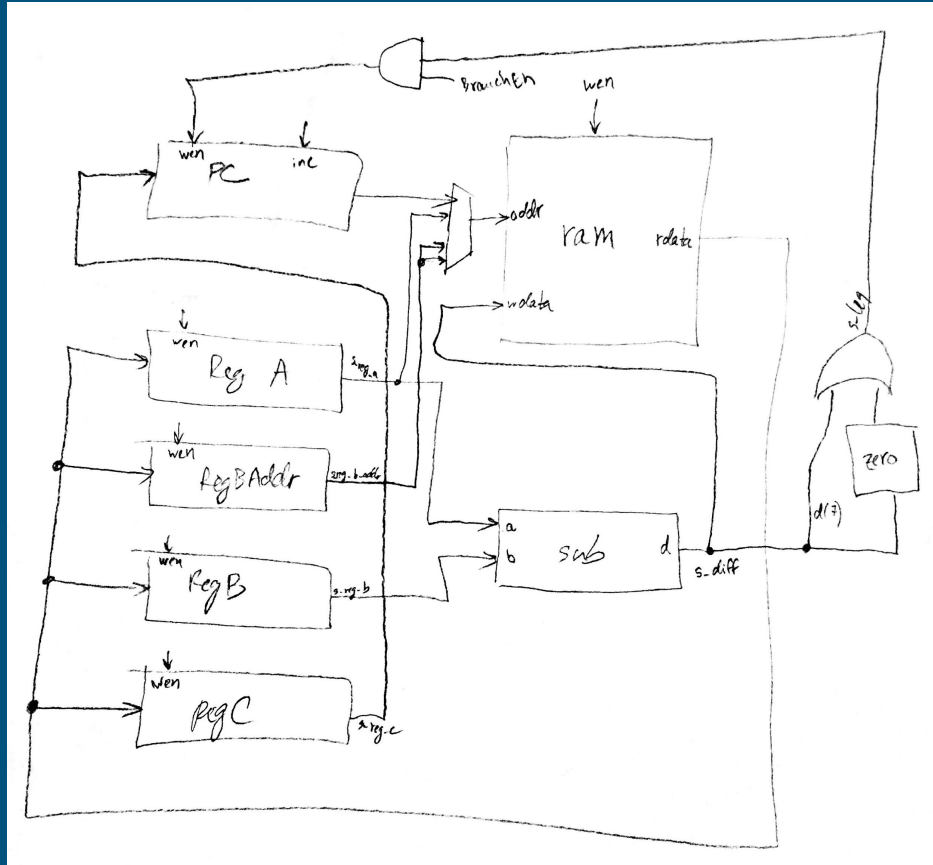 BranchEn
wen
wen
inc
PC
addr
ram
rdata
wdata
s-leq
wen
Reg A
s_reg_a
wen
RegBAddr
s_reg_b_addr
zero
d(7)
a
b
sub
d
s_diff
wen
RegB
s_reg_b
wen
RegC
s_reg_c